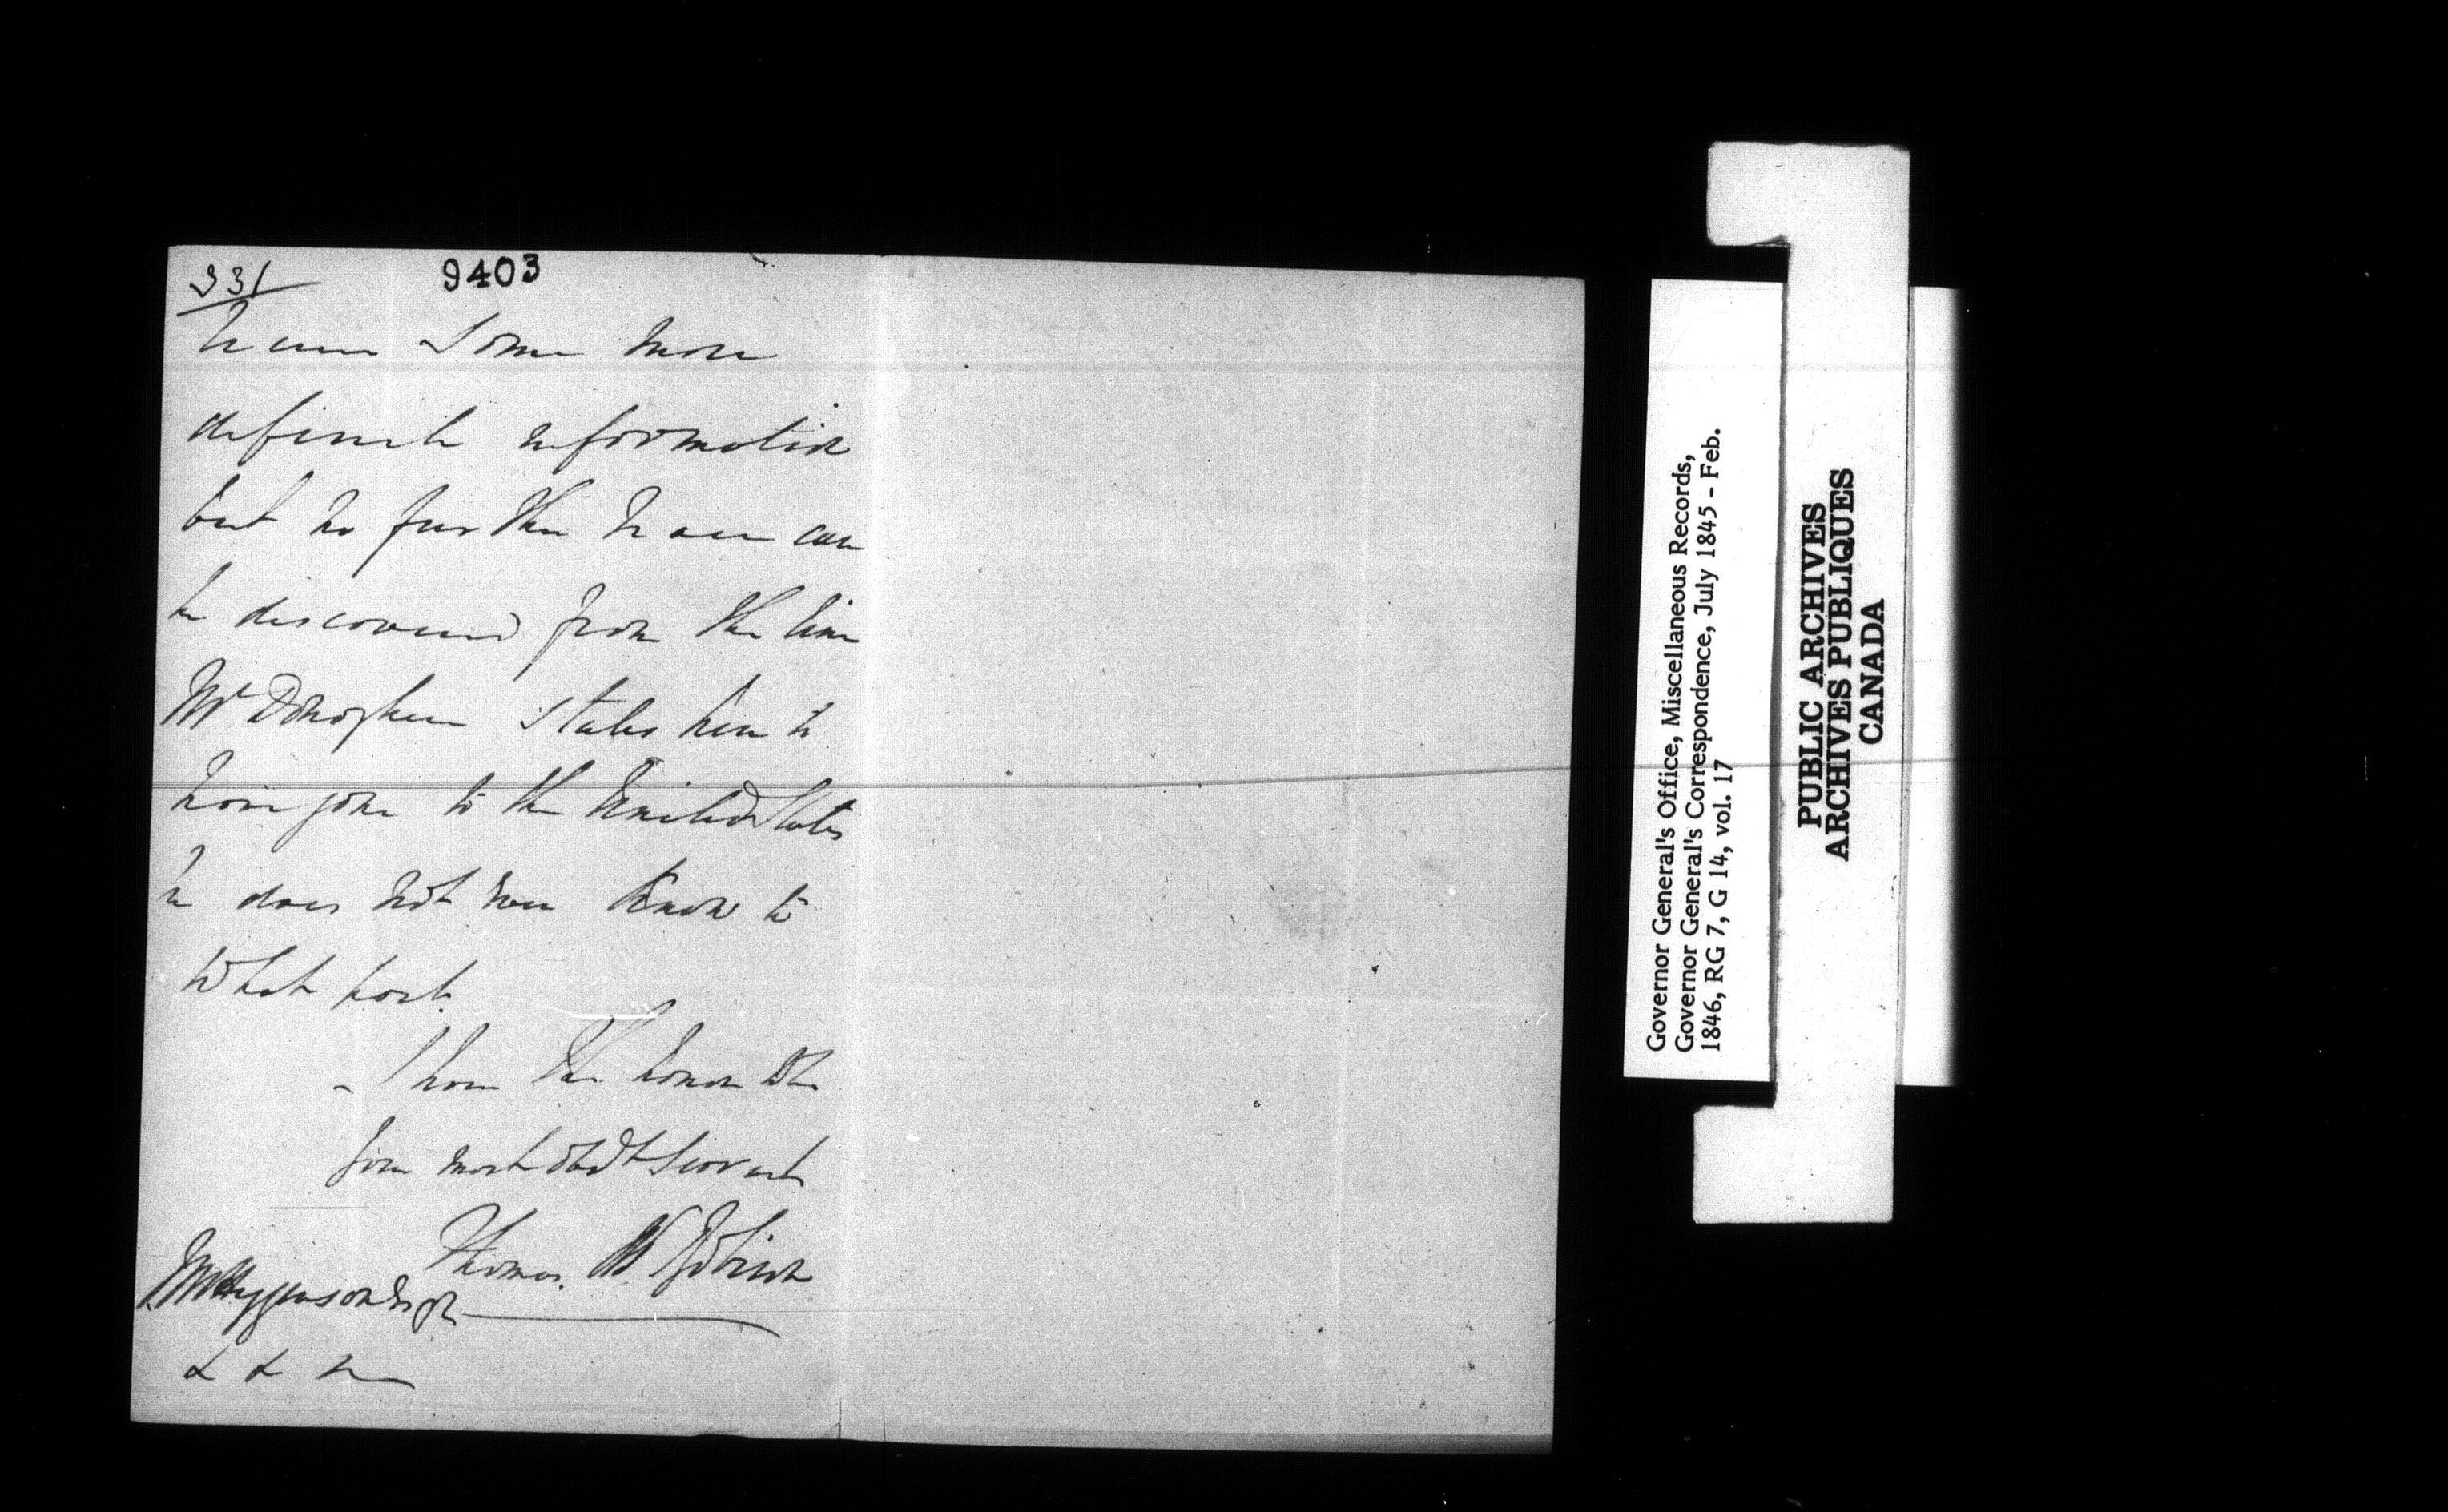 931
9403
some more
definite information
but no further trace can
be discovered from the time
Mr Donoghue states him to
have gone to the United States
he does not even know to
what part.
I have the honor to be
your most obedt servant
Thomas W.
J M Higginson Esqre
& & &
Governor General's Office, Miscellaneous Records,
Governor General's Correspondence, July 1845 - Feb.
1846, RG 7, G 14, vol. 17
PUBLIC ARCHIVES
ARCHIVES PUBLIQUES
CANADA